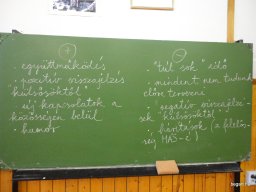 +
• együttműködés
• pozitív visszajelzés
"külsősöktől"
• új kapcsolatok a
közösségen belül
• humor
–
• "túl sok" idő
• mindent nem tudunk
előre tervezni
• negatív visszajelzé-
sek "külsősöktől"
• hiányzások (a felelős-
ség